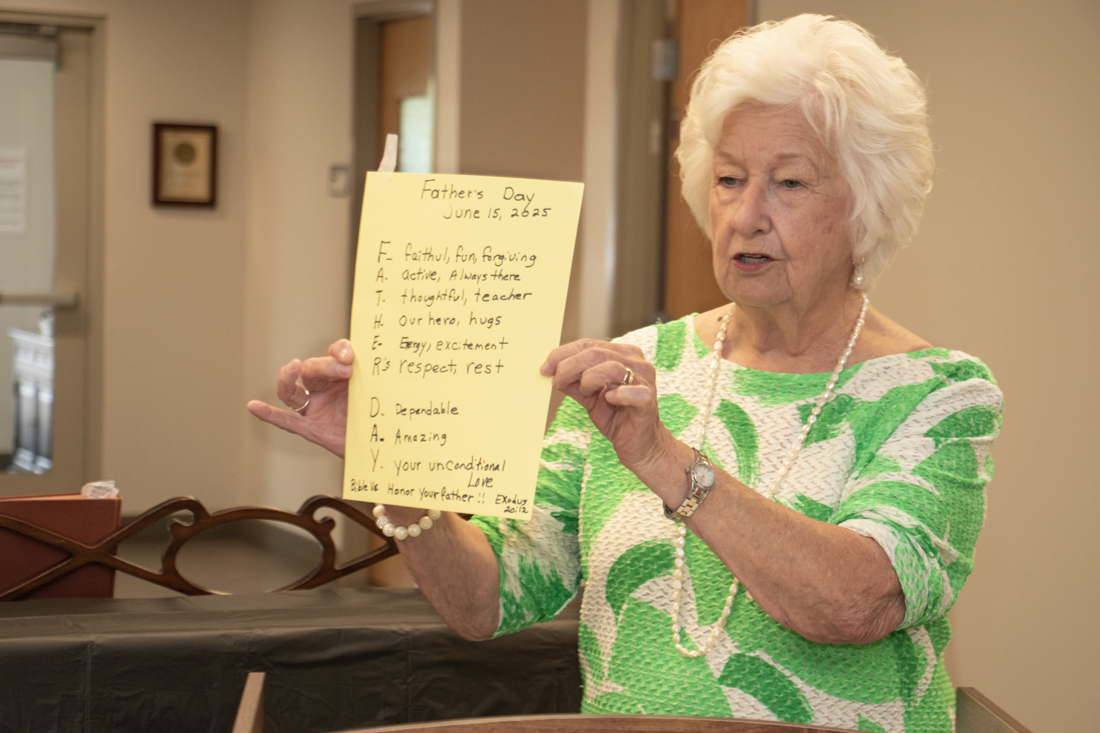 Father's Day
June 15, 2025
F- faithul, fun, forgiving
A. active, Always there
T. thoughtful, teacher
H. Our hero, hugs
E- Energy, excitement
R's respect, rest
D. Dependable
A. Amazing
Y. your unconditional
Love
Bible Vs Honor your father!! Exodus
20:12